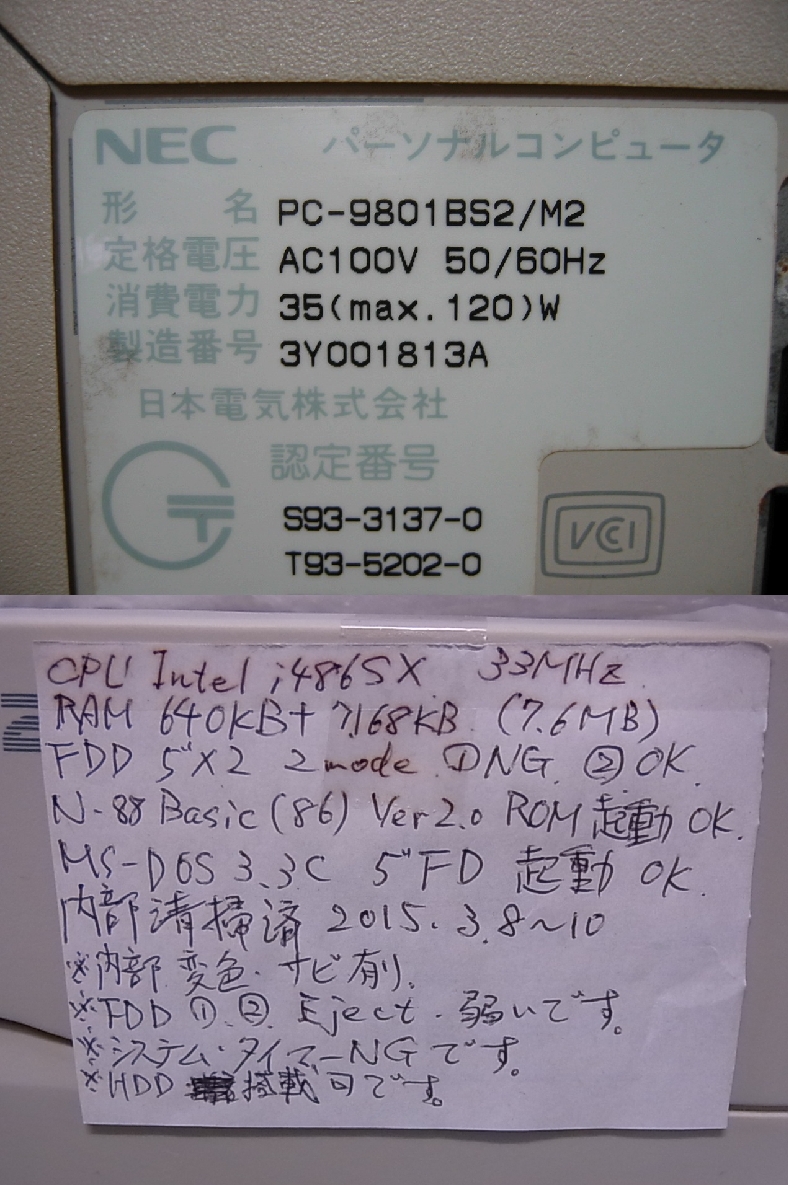 NEC パーソナルコンピュータ
形 名 PC-9801BS2/M2
定格電圧 AC100V 50/60Hz
消費電力 35(max.120)W
製造番号 3Y001813A
日本電気株式会社
認定番号
S93-3137-0
T93-5202-0
VCCI
CPU Intel i486SX 33MHz
RAM 640KB+7,168KB (7.6MB)
FDD 5"×2 2mode ①NG. ②OK.
N-88 Basic(86) Ver2.0 ROM起動OK.
MS-DOS 3.3C 5"FD 起動OK.
内部清掃済 2015.3.8~10
※内部 変色・サビ有り.
※FDD①.②. Eject.弱いです。
※システム・タイマーNGです。
※HDD 搭載可です。